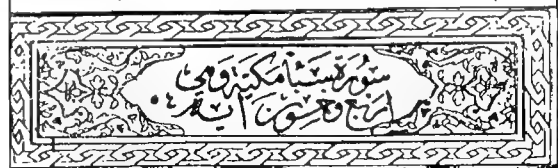 سورة سبأ مكية وهي
اربع وخمسون آية ٥٤